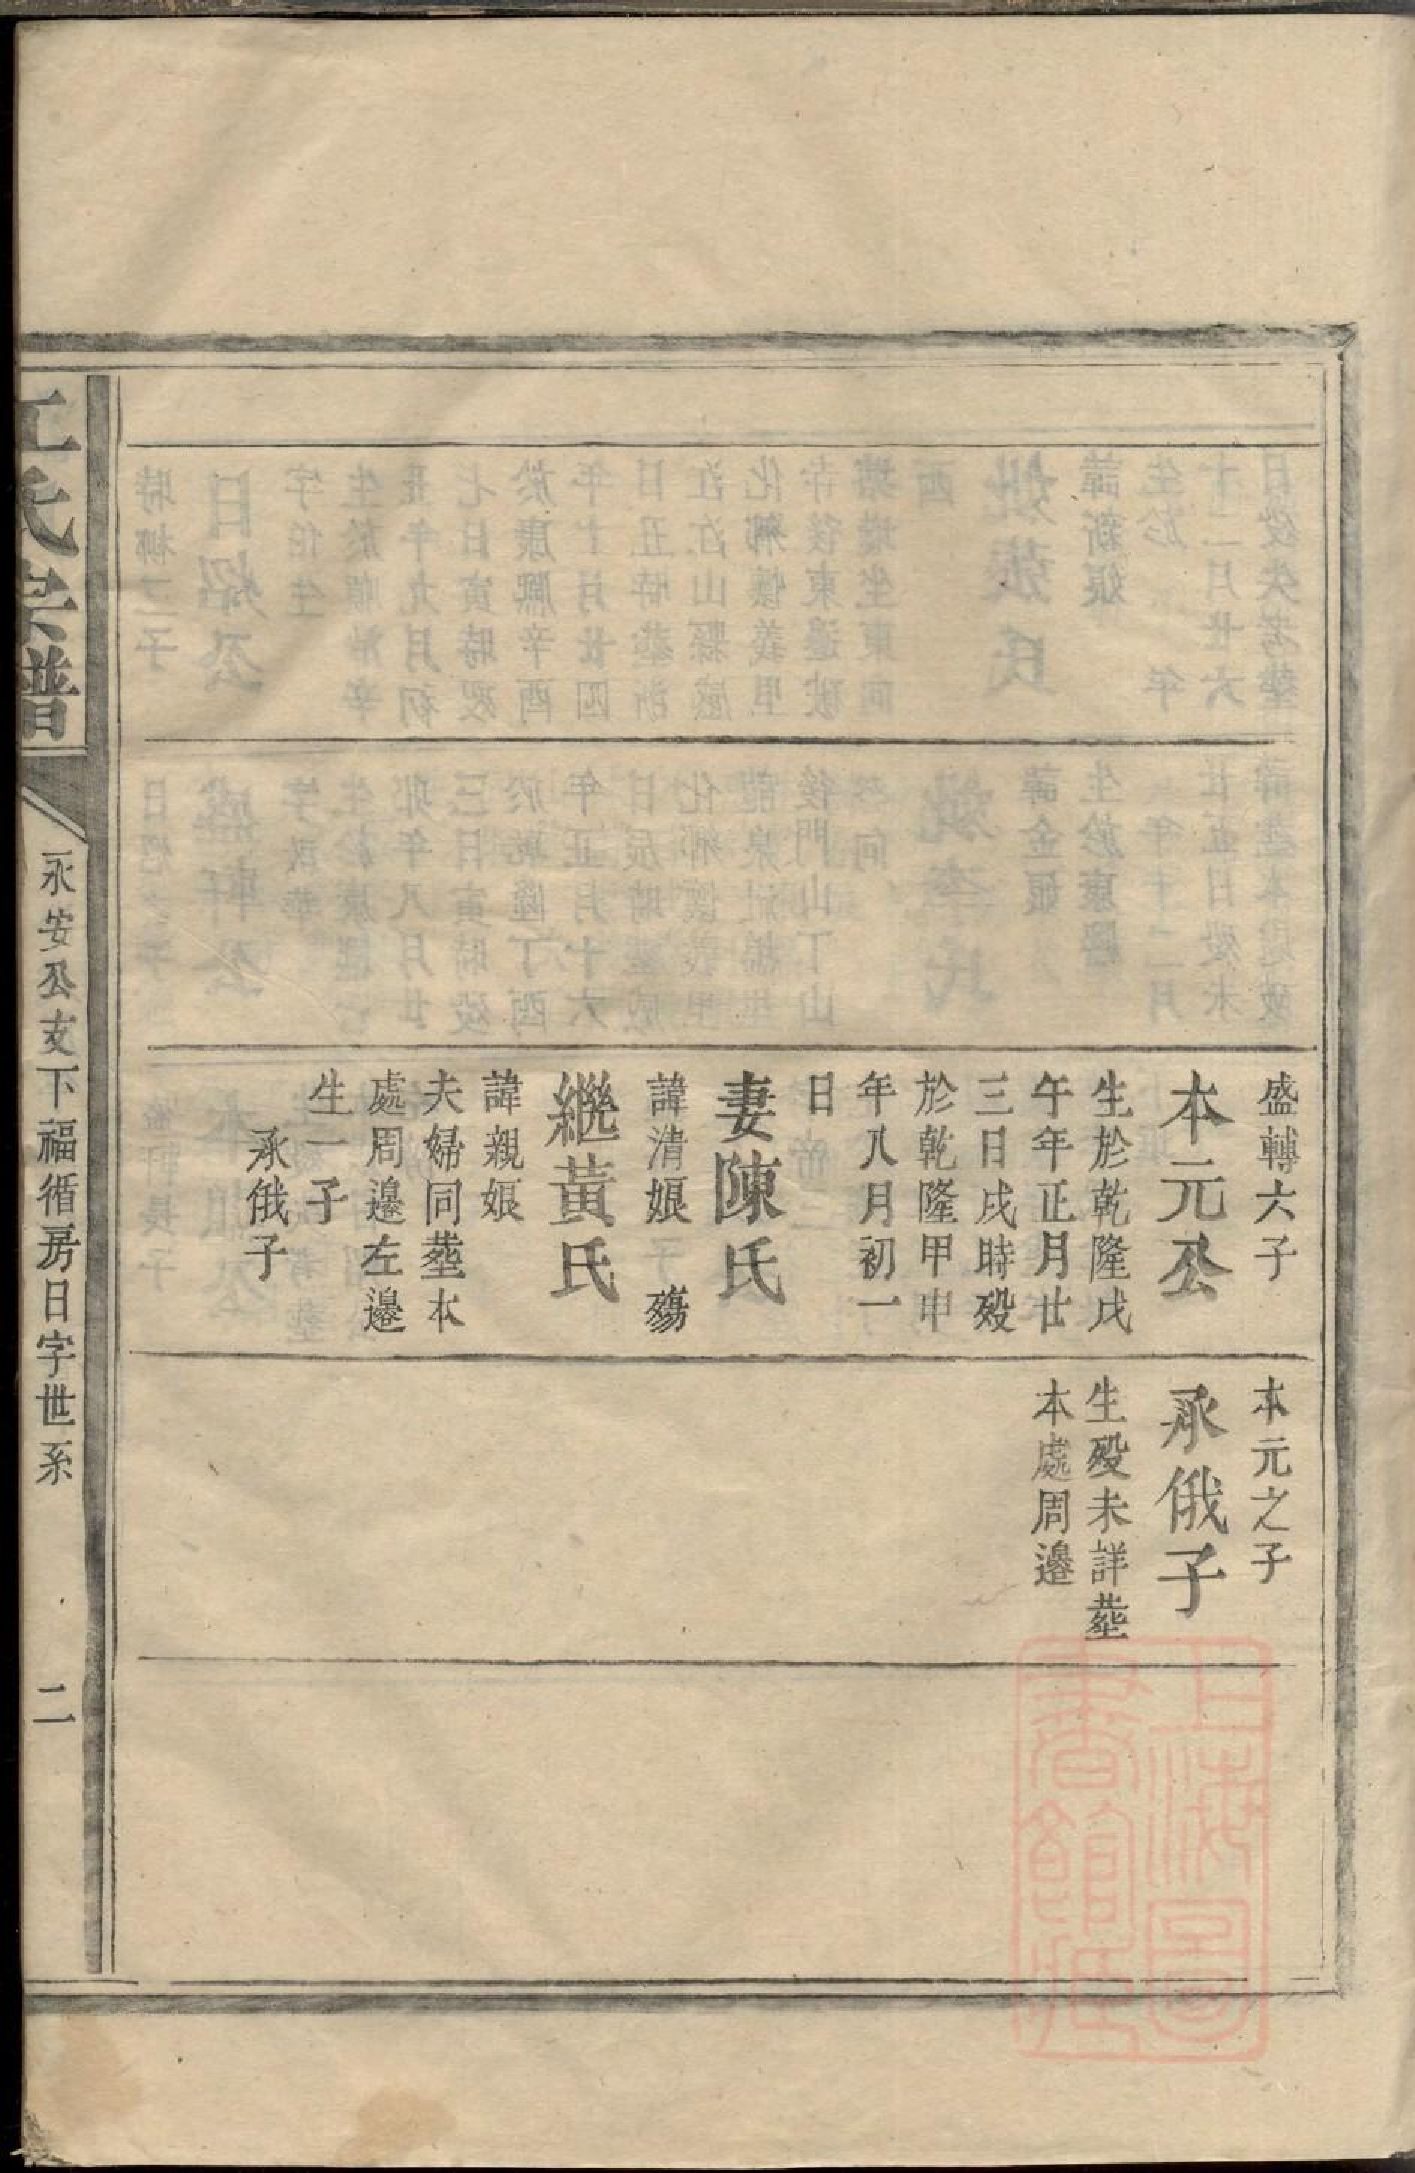 盛轉六子
本元公
生於乾隆戊
午年正月廿
三日戌時殁
於乾隆甲申
年八月初一
日
妻陳氏
諱清娘 殤
繼黃氏
諱親娘
夫婦同塟本
處周邊左邊
生一子
承俄子
本元之子
承俄子
生殁未詳塟
本處周邊
江氏宗譜
永安公支下福循房日字世系
二
上海圖書館藏